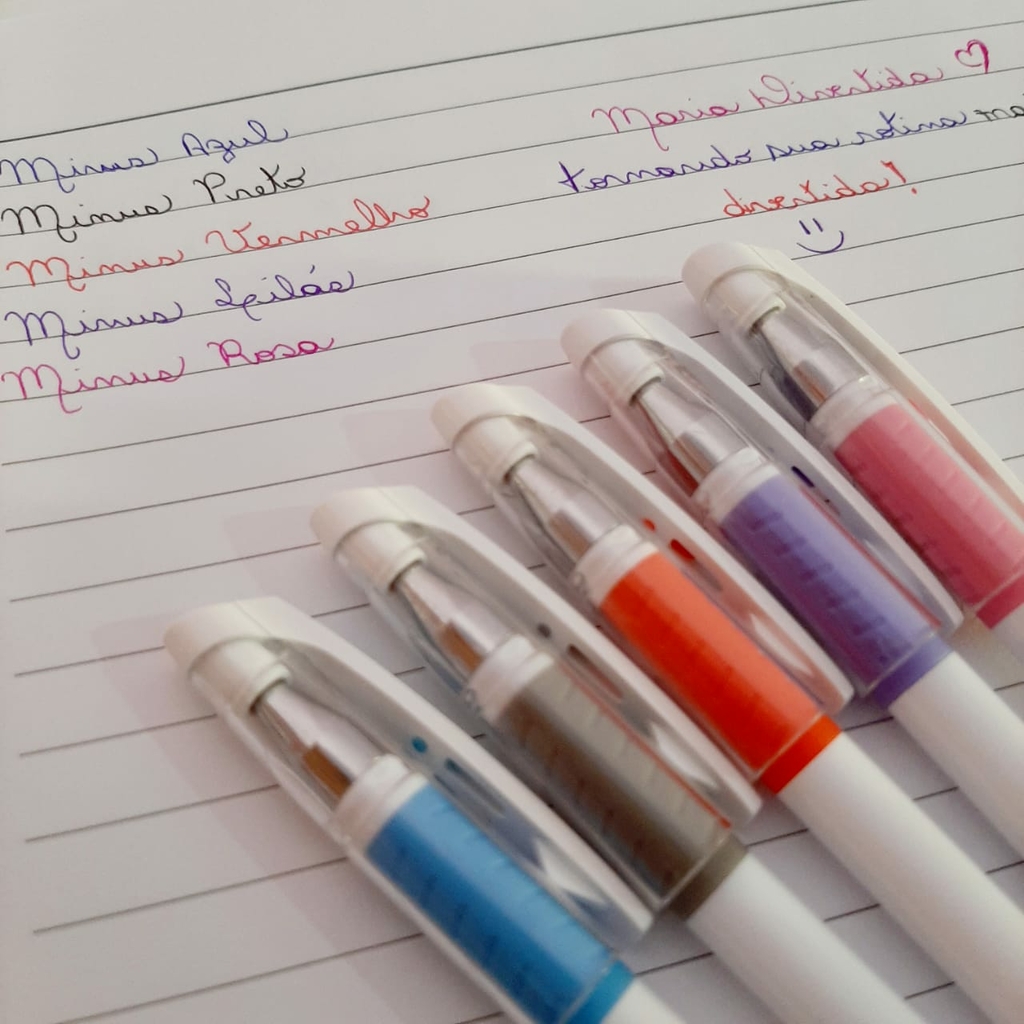 Minus Azul
Minus Preto
Minus Vermelho
Minus Leilás
Minus Rosa
Maria Divertida
tornando sua rotina mai
divertida!